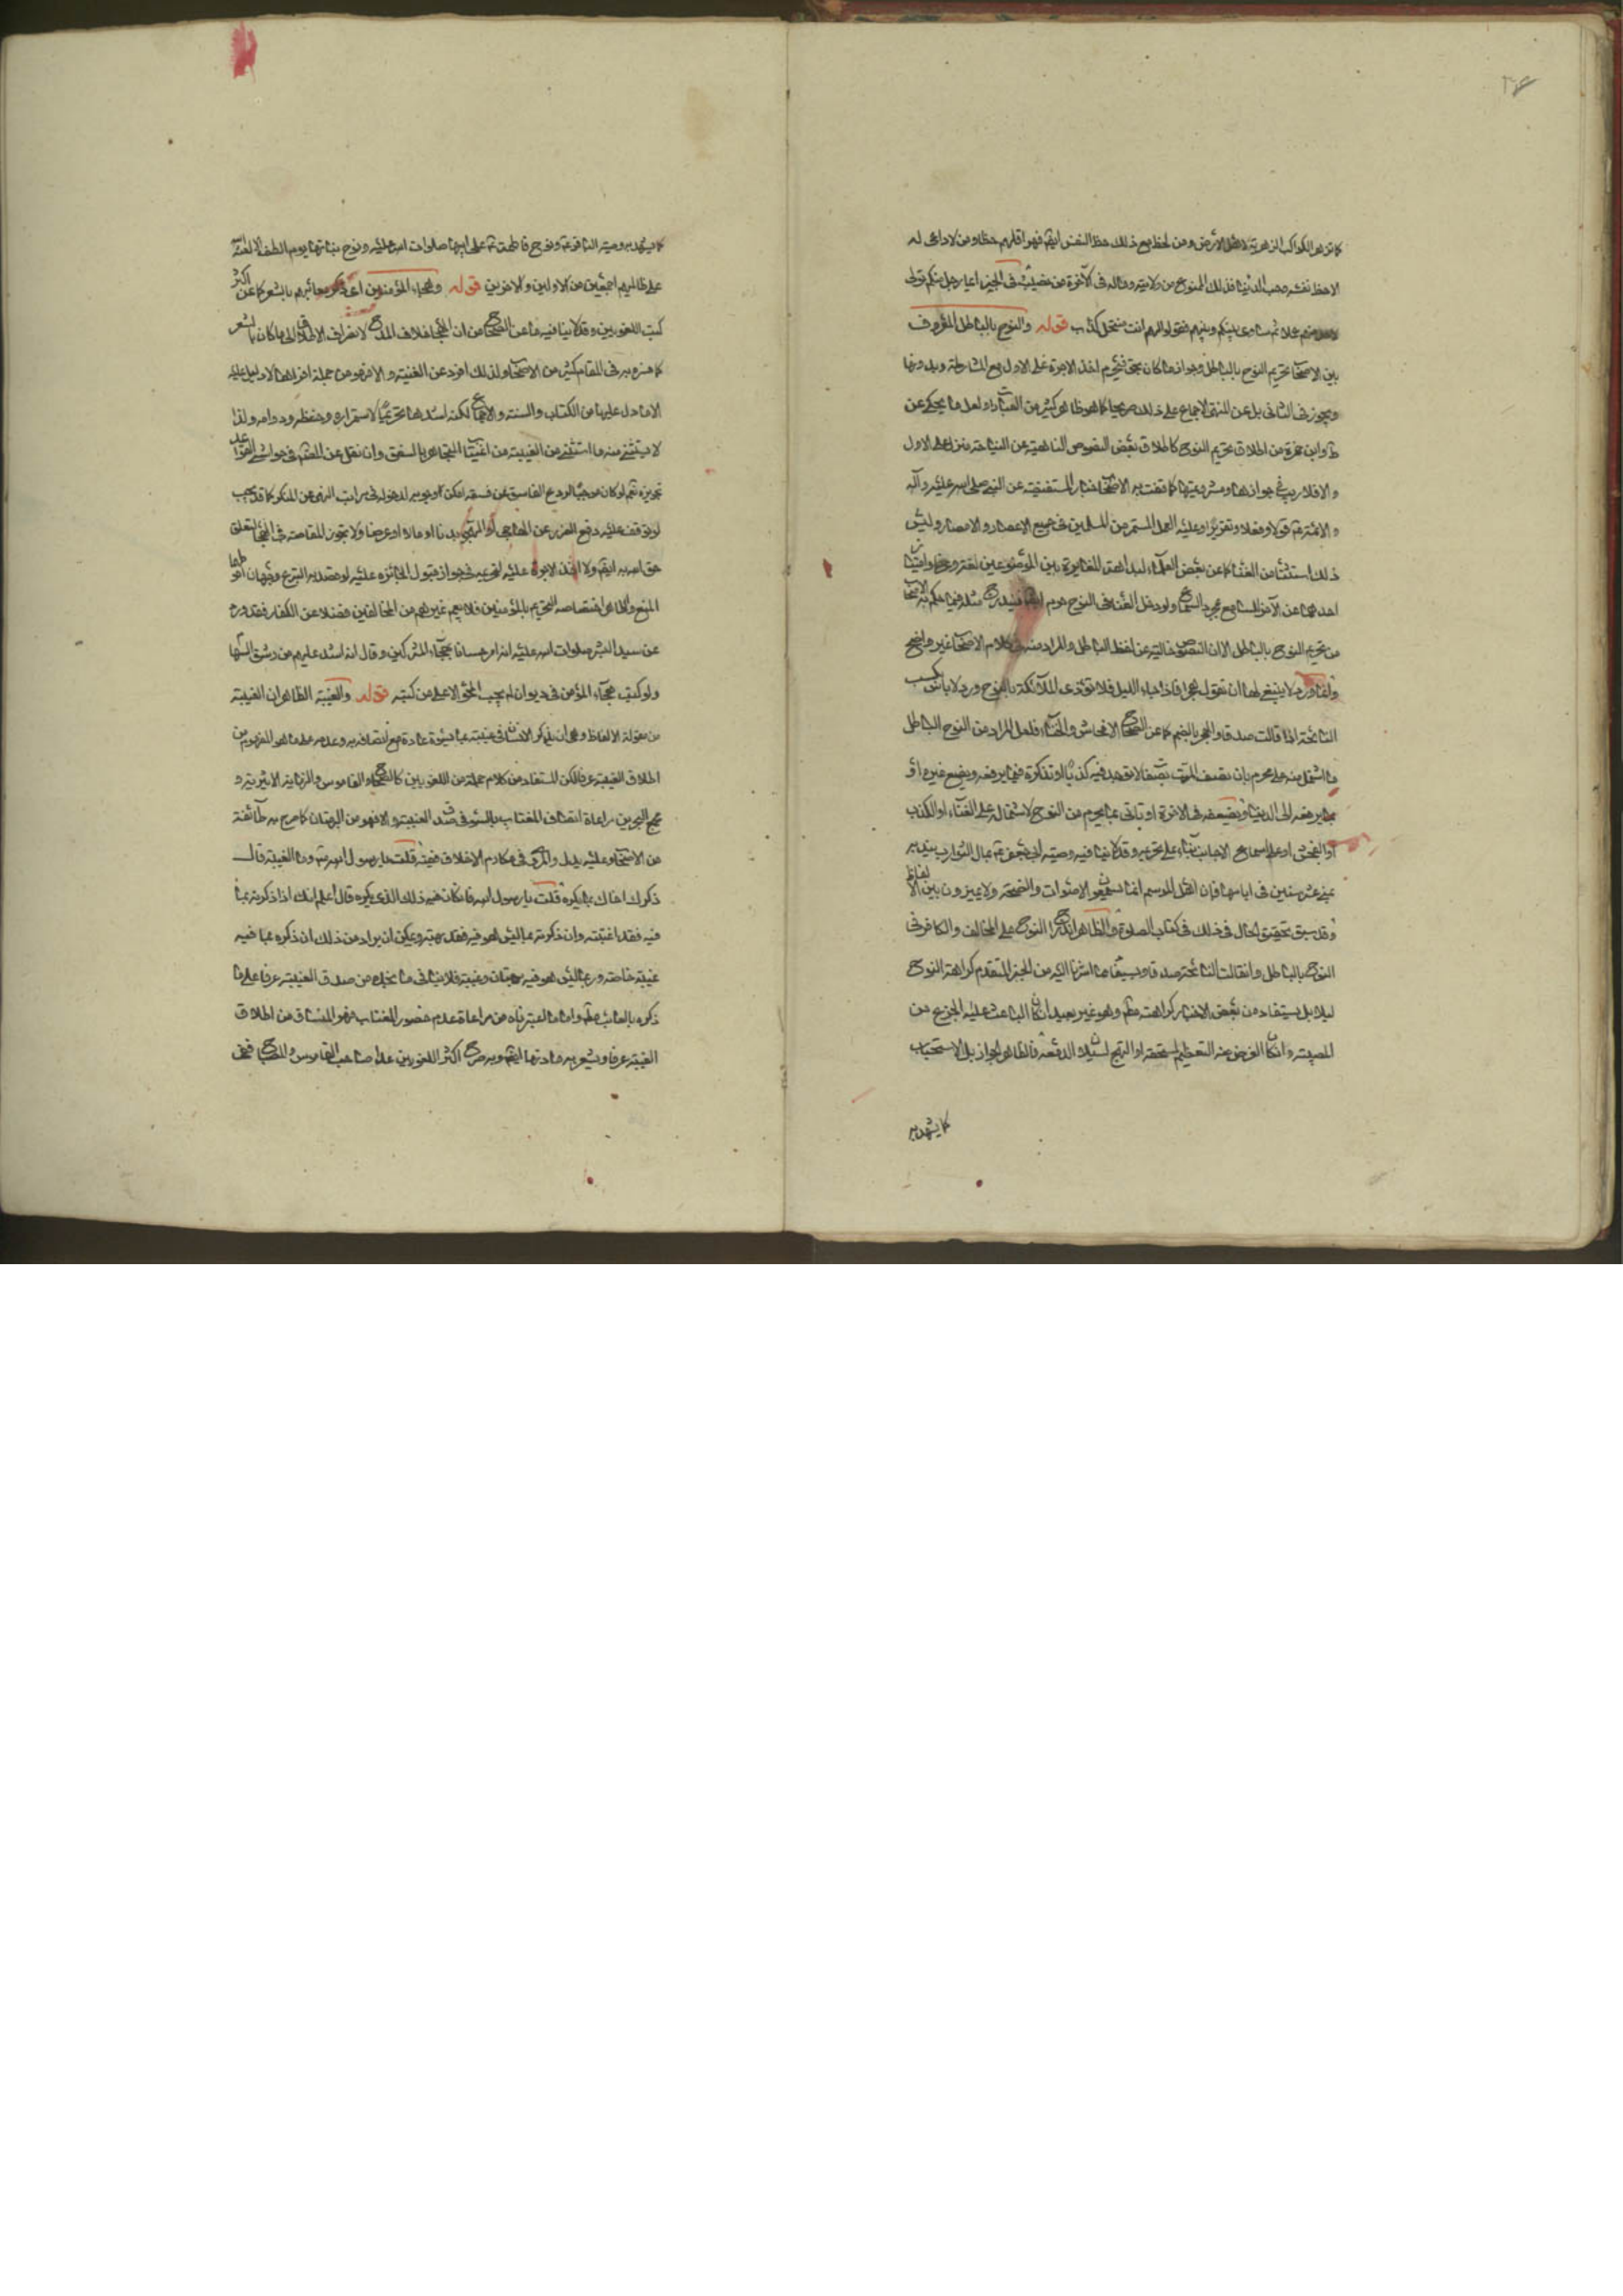 كما تزهر الكواكب الزهرية لاهل الارض ومن لحظ مع ذلك حظ النفس ايضا فهو اقلهم حظا ومن لا داعى له
الا حظ نفسه وحب الدنيا فذلك الممنوع من ولايته وماله فى الآخرة من نصيب فى الخبر ايما رجل منكم تولى
ثم ساوى بينكم وبينهم فقولوا لهم انت منتحل كذاب قوله والنوح بالباطل المعروف
بين الاصحاب تحريم النوح بالباطل وجوازه ما كان بحق فتحرم اخذ الاجرة على الاول مع المشارطة وبدونها
ويجوز فى الثانى بل عن المنتهى الاجماع على ذلك صريحا كما هو ظاهر كثير من العبارات ولعل ما يحكى عن
ط وابن حمزة من اطلاق تحريم النوح كاطلاق بعض النصوص الناهية عن النياحة منزل على الاول
والا فلا ريب فى جوازها ومشروعيتها كما تفت به الاخبار المستفيضة عن النبى صلى الله عليه وآله
والائمة ع قولا وفعلا وتقريرا وعليه العمل المستمر من المسلمين فى جميع الاعصار والامصار وليس
ذلك استثناء من الغناء كما عن بعض العلماء لبداهة المغايرة بين الموضوعين لغة وعرفا وامتياز
احدهما عن الآخر للسامع بمجرد السماع ولو دخل الغناء فى النوح حرم ايضا
من تحريم النوح بالباطل الا ان النصوص خالية عن لفظ الباطل والمراد منه فى كلام الاصحاب غير واضح
وانما ورد لا ينبغى لها ان تقول هجرا فاذا جاء الليل فلا تؤذى الملائكة بالنوح وورد لا باس بكسب
النائحة اذا قالت صدقا والهجر بالضم كما عن الصحاح الافحاش والخناء فلعل المراد من النوح الباطل
ما اشتمل منه على محرم بان تصف الميت بصفات لا توجد فيه كذبا او تذكره فيما يرفعه ويضع غيره او
بما يرفعه الى الدنيا ويضعفه فى الاخرة او تاتى بما يحرم من النوح لاشتماله على الغناء او الكذب
او الفحش او على اسماع الاجانب بناء على تحريمه وقد لا ينافيه وصية ابى جعفر ع بمال النوادب يندبه
بمنى عشر سنين فى ايامها فان اهل الموسم انما يسمعون الاصوات والضجة ولا يميزون بين الالفاظ
وقد سبق تحقيق الحال فى ذلك فى كتاب الصلوة والظاهر اندراج النوح على المخالف والكافر فى
النوح بالباطل وان قالت النائحة صدقا ويستفاد مما اشرنا اليه من الخبر المتقدم كراهة النوح
ليلا بل يستفاد من بعض الاخبار كراهته مطم وهو غير بعيد ان كان الباعث عليه الجزع من
المصيبة وان كان الغرض عنه التعظيم لمستحقه او التهييج لسيلان الدمعة فالظاهر الجواز بل الاستحباب
كما يشهد به
كما يشهد به وصيته الباقر ع ونوح فاطمة ع على ابيها صلوات الله عليه ونوح بناتها يوم الطف الا لعنة الله
على ظالميهم اجمعين من الاولين والاخرين قوله وهجاء المؤمنين اى ذكر معائبهم بالشعر كما عن اكثر
كتب اللغويين وقد لا ينافيه ما عن الصحاح من ان الهجا خلاف المدح لانصراف الاطلاق الى ما كان بالشعر
كما صرح به فى المقام كثير من الاصحاب ولذلك افرد عن الغيبة والا فهو من جملة افرادها لا دليل عليه
الا ما دل عليها من الكتاب والسنة والاجماع لكنه اشدها تحريما لاستمراره وحفظه ودوامه ولذا
لا يستثنى منه ما استثنى من الغيبة من اغتياب المتجاهر بالفسق وان نقل عن المقدم فى حواشى القواعد
تجويزه نعم لو كان موجبا لردع الفاسق عن فسقه امكن او وجوبه لدخوله فى مراتب النهى عن المنكر كما قد يجب
لو توقف عليه دفع الضرر عن الهاجى او المهجو بدنا او مالا او عرضا ولا تجوز المقاصة فى الهجا لتعلق
حق الله به ايضا ولا اخذ الاجرة عليه لتحريمه وفى جواز قبول الجائزة عليه لو قصد به التبرع وجهان احوطهما
المنع والظاهر اختصاصه التحريم بالمؤمنين فلا يعم غيرهم من المخالفين فضلا عن الكفار فقد ورد
عن سيد البشر صلوات الله عليه انه امر حسانا بهجاء المشركين وقال انه اشد عليهم من رشق السهام
ولو كتب هجاء المؤمن فى ديوان لم يجب المحو الا على من كتبه قوله والغيبة الظاهر ان الغيبة
من مقولة الالفاظ وهى ان يذكر الانسان فى غيبته بما يسوؤه عادة مع اتصافه به وعدمه على ما هو المفهوم من
اطلاق الغيبة عرفا لكن المستفاد من كلام جملة من اللغويين كالصحاح والقاموس والنهاية الاثيرية و
مجمع البحرين مراعاة اتصاف المغتاب بالسوء فى صدق الغيبة والا فهو من البهتان كما صرح به طائفة
من الاصحاب وعليه يدل والمروى فى مكارم الاخلاق فيه قلت يا رسول الله ص وما الغيبة قال
ذكرك اخاك بما يكره قلت يا رسول الله فان كان فيه ذلك الذى يكره قال اعلم انك اذا ذكرته بما
فيه فقد اغتبته وان ذكرته بما ليس هو فيه فقد بهته ويمكن ان يراد من ذلك ان ذكره بما فيه
غيبة خاصة وربما ليس هو فيه بهتان وغيبة فلا ينافى ما نخبره من صدق الغيبة عرفا على ما
ذكره بالعائب مطم واما ما اعتبرناه من مراعاة عدم حضور المغتاب فهو المنساق من اطلاق
الغيبة عرفا ويشعر به مادتها ايضا وبه صرح اكثر اللغويين عدا صاحب القاموس والمصباح ففى